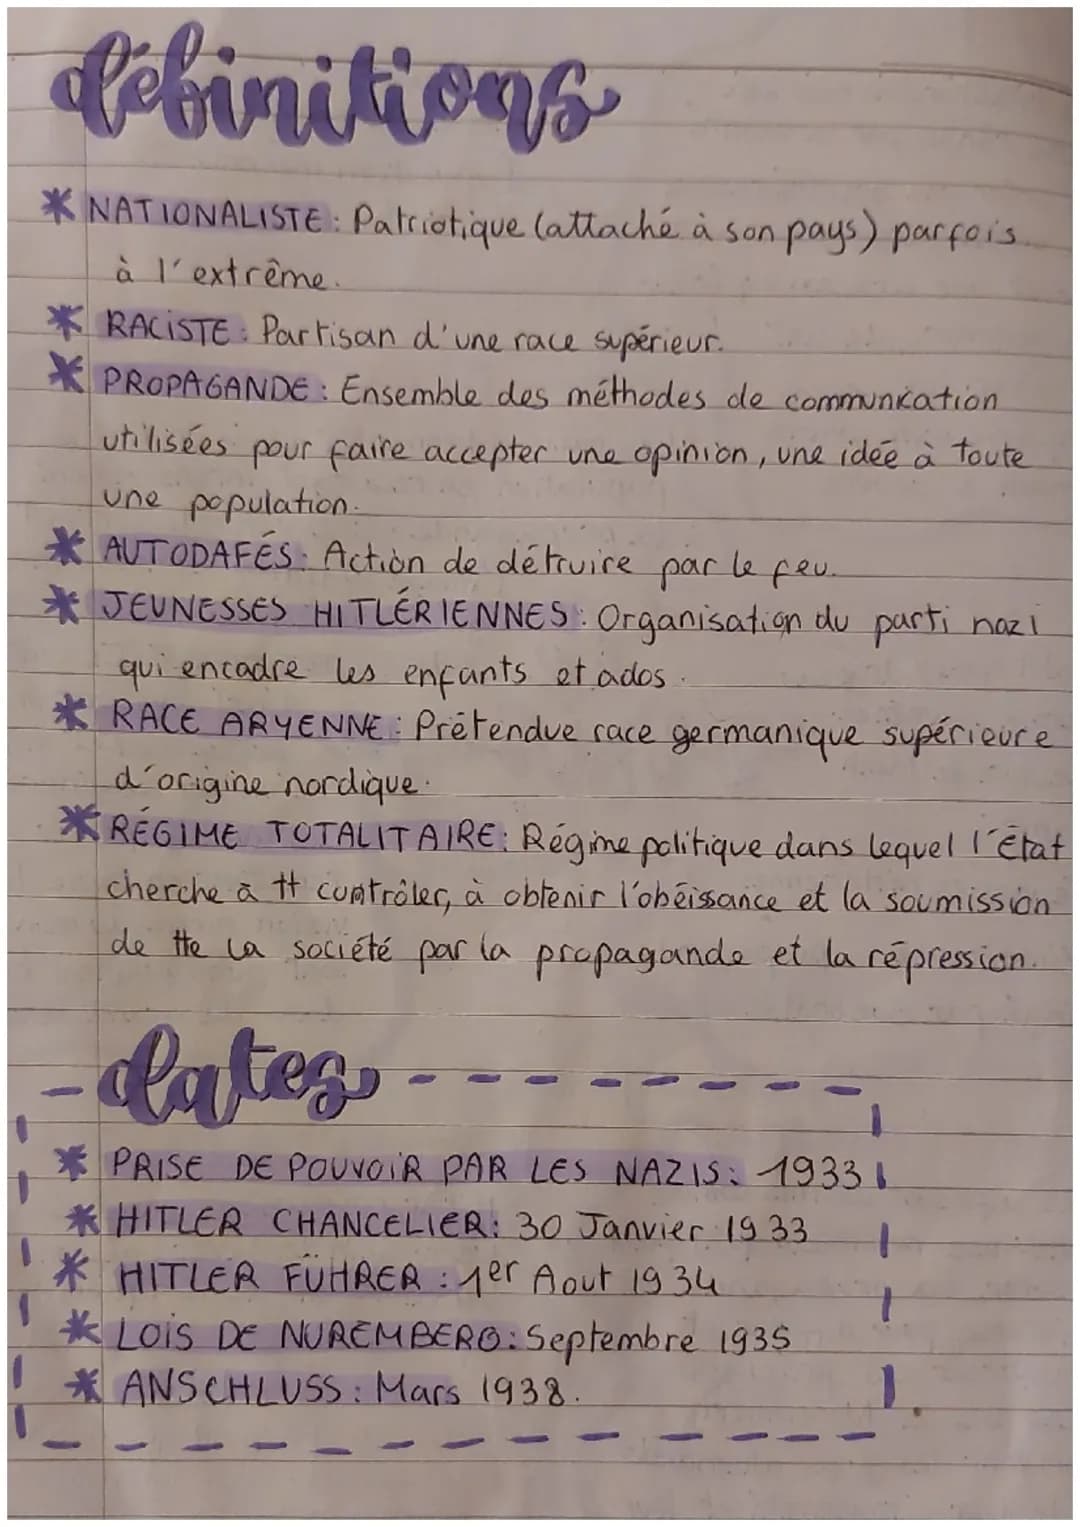 définitions
* NATIONALISTE : Patriotique (attaché à son pays) parfois
à l'extrême.
* RACISTE : Partisan d'une race supérieur.
* PROPAGANDE : Ensemble des méthodes de communication
utilisées pour faire accepter une opinion, une idée à toute
une population.
* AUTODAFÉS : Action de détruire par le feu.
* JEUNESSES HITLÉRIENNES : Organisation du parti nazi
qui encadre les enfants et ados.
* RACE ARYENNE : Prétendue race germanique supérieure
d'origine nordique.
* RÉGIME TOTALITAIRE : Régime politique dans lequel l'État
cherche à tt contrôler, à obtenir l'obéissance et la soumission
de tte la société par la propagande et la répression.
dates
* PRISE DE POUVOIR PAR LES NAZIS : 1933
* HITLER CHANCELIER : 30 Janvier 1933
* HITLER FÜHRER : 1er Aout 1934
* LOIS DE NUREMBERG : Septembre 1935
* ANSCHLUSS : Mars 1938.